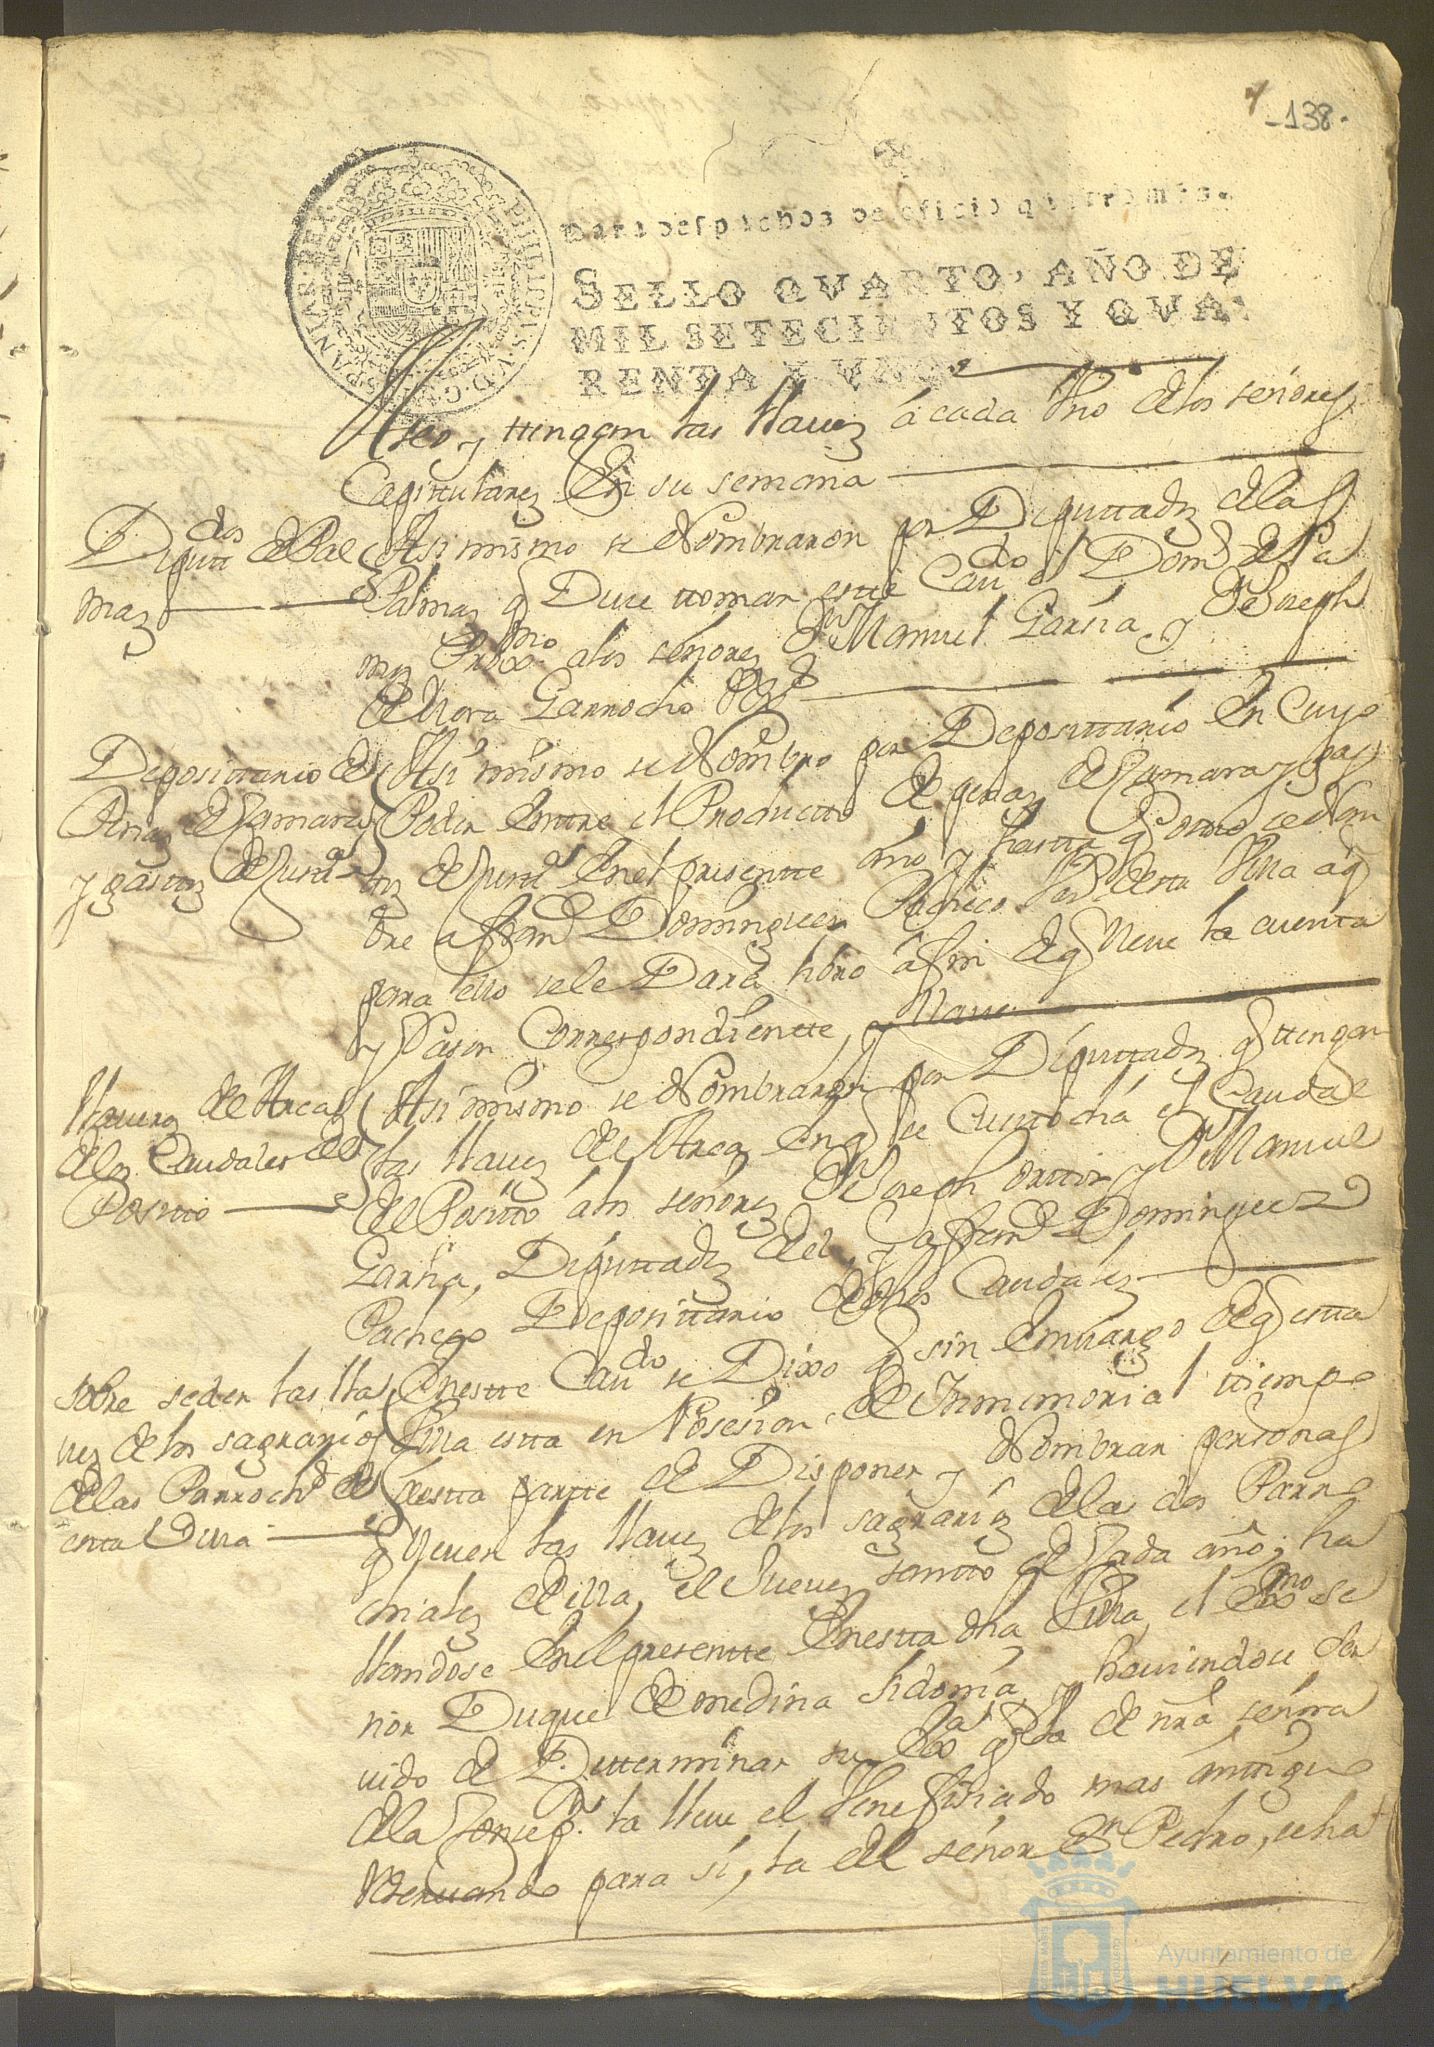 -138-
Para despachos de oficio quatro mrs.
SELLO QVARTO, AÑO DE
MIL SETECIENTOS Y QVA-
RENTA Y VNO.
PHILIPPUS V D G HISPANIAR REX
Aseo, y ttengan las llaues â cada Vno delos señores
Capitulares En su semana
Diputtdos de Pal
mas
Asi mismo se Nombraron por Diputtados delas
Palmas q Deue ttomar estte Caudo el Domo de Ra
mos Proxmo alos señores Dn Manuel Garsia, y Dn Joseph
de Mora Garrocho
Deposittario de
Penas de Camara
y gasttos de Justa
Asi mismo se Nombro por Deposittario En Cuyo
Poder Enttre el Productto de penas de Camara y gas
ttos de Justa Enel presentte año y hastta q ottro se Nom
bre a Frando Dominguez Pacheco Vo de esta Villa a q
para ello sele Dara libro â fin de q lleue la cuenta
y Rason Correspondientte, y llaue
llaueros de Arcas
delos Caudales del
Positto
Asi mismo se Nombraron por Diputtados q ttengan
las llaues de Arcas en q se Custtodia el Caudal
del Positto âlos señores Dn Joseph orttiz y Dn Manuel
Garsia, Diputtados del, y a Frando Dominguez
Pacheco Deposittario de dhos Caudales
sobre seder las lla
ues delos sagrarios
delas Parrochs de
esta Villa
Enestte Caudo se Dixo q sin Embargo de q estta
Villa estta en Posesion, de Inmemorial ttiempo
âestta partte de Disponer y Nombrar personas
q lleuen las llaues delos sagrarios dela dos Parro
chiales de illa, el Jueues santto de Cada año; ha
llandose Enel presentte Enestta dha Villa, el Exmo se
ñor Duque de medina sidonia, y hauiendose ser
uido de Dettermïnar su Exa q la de nra señora
dela Consepn la lleue el Venefisiado mas anttiguo
Reseruando para sí, la del señor Sn Pedro, se ha
Ayuntamiento de
HUELVA